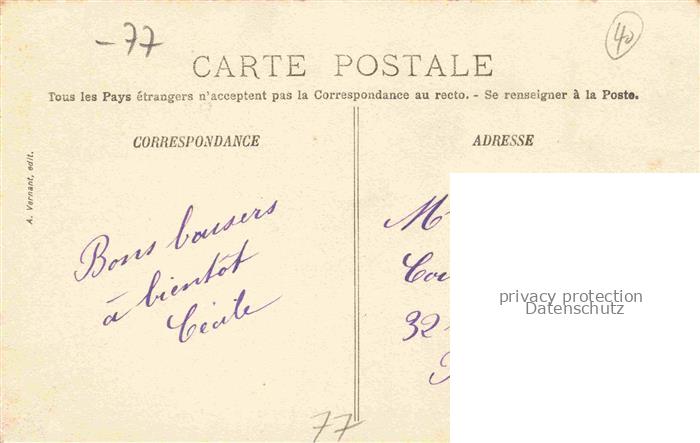 -77
40
CARTE POSTALE
Tous les Pays étrangers n'acceptent pas la Correspondance au recto. - Se renseigner à la Poste.
CORRESPONDANCE
ADRESSE
A. Vernant, edit.
Bons baisers
à bientôt
Cécile
M
Cou
32
privacy protection
Datenschutz
77